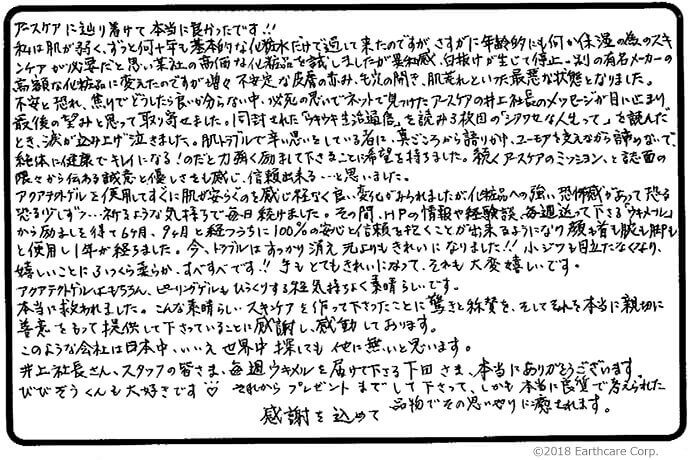 アースケアに辿り着けて本当に良かったです!!
私は肌が弱く、ずっと何十年も基本的な化粧水だけで過して来たのですが、さすがに年齢的にも何か保湿の為のスキ
ンケアが必要だと思い某社の高価な化粧品を試しましたが異和感、白抜けが生じて停止…別の有名メーカーの
高額な化粧品に変えたのですが増々不安定な皮膚の赤み、毛穴の開き、肌荒れといった最悪な状態となりました。
不安と恐れ、焦りでどうしたら良いか分らない中、必死の思いでネットで見つけたアースケアの井上社長のメッセージが目に止まり、
最後の望みと思って取り寄せました。同封されたウキウキ生活通信を読み3枚目の"シアワセな人生って"を読んだ
とき、涙が込み上げ泣きました。肌トラブルで辛い思いをしている者に、真ごころから語りかけ、ユーモアを交えながら諦めないで、
絶体に健康でキレイになる!のだと力強く励まして下さることに希望を持ちました。続くアースケアのミッション、と誌面の
隅々から伝わる誠意と優しさをも感じ、信頼出来る…と思いました。
アクアテクトゲルを使用してすぐに肌が安らぐのを感じ程なく良い変化がみられましたが化粧品への強い恐怖感があって恐る
恐る少しずつ…祈るような気持ちで毎日続けました。その間、HPの情報や経験談、毎週送って下さる"ウキメル"
から励ましを得て6ヶ月、9ヶ月と経つうちに100%の安心と信頼を抱くことが出来るようになり顔も首も腕も脚も
と使用し1年が経ちました。今、トラブルはすっかり消え元よりもきれいになりました!!小ジワも目立たなくなり、
嬉しいことにふっくら柔らか、すべすべです!!手もとてもきれいになって、それも大変嬉しいです。
アクアテクトゲルはもちろん、ピーリングゲルもびっくりする程気持ちよく素晴らしいです。
本当に救われました。こんな素晴らしいスキンケアを作って下さったことに驚きと称賛を、そしてそれを本当に親切に
善意をもって提供して下さっていることに感謝し、感動しております。
このような会社は日本中、いいえ世界中探しても他に無いと思います。
井上社長さん、スタッフの皆さま、毎週ウキメルを届けて下さる下田さま、本当にありがとうございます。
びびぞうくんも大好きです♡ それからプレゼントまでして下さって、しかも本当に良質で考えられた
品物でその思いやりに癒されます。
感謝を込めて
©2018 Earthcare Corp.